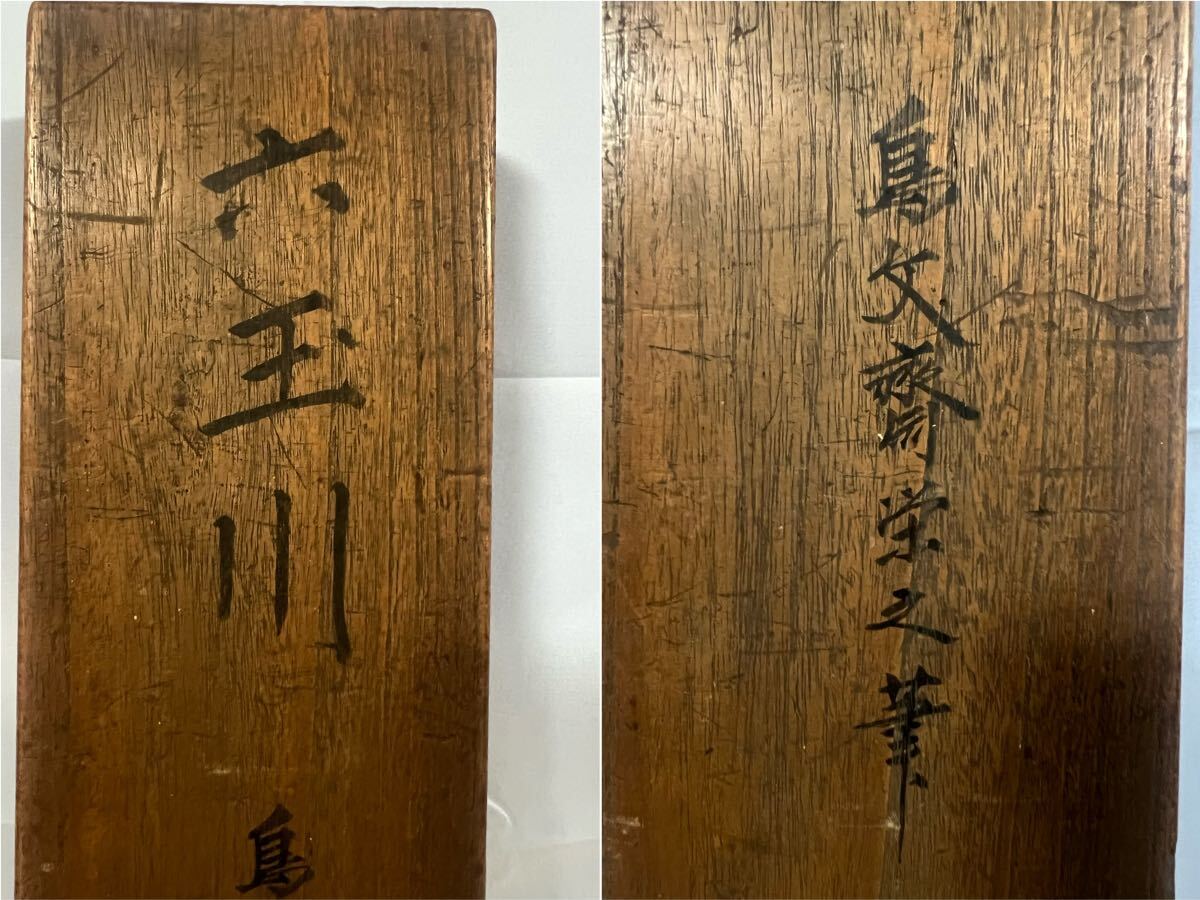 六玉川
鳥
鳥文齋栄之筆